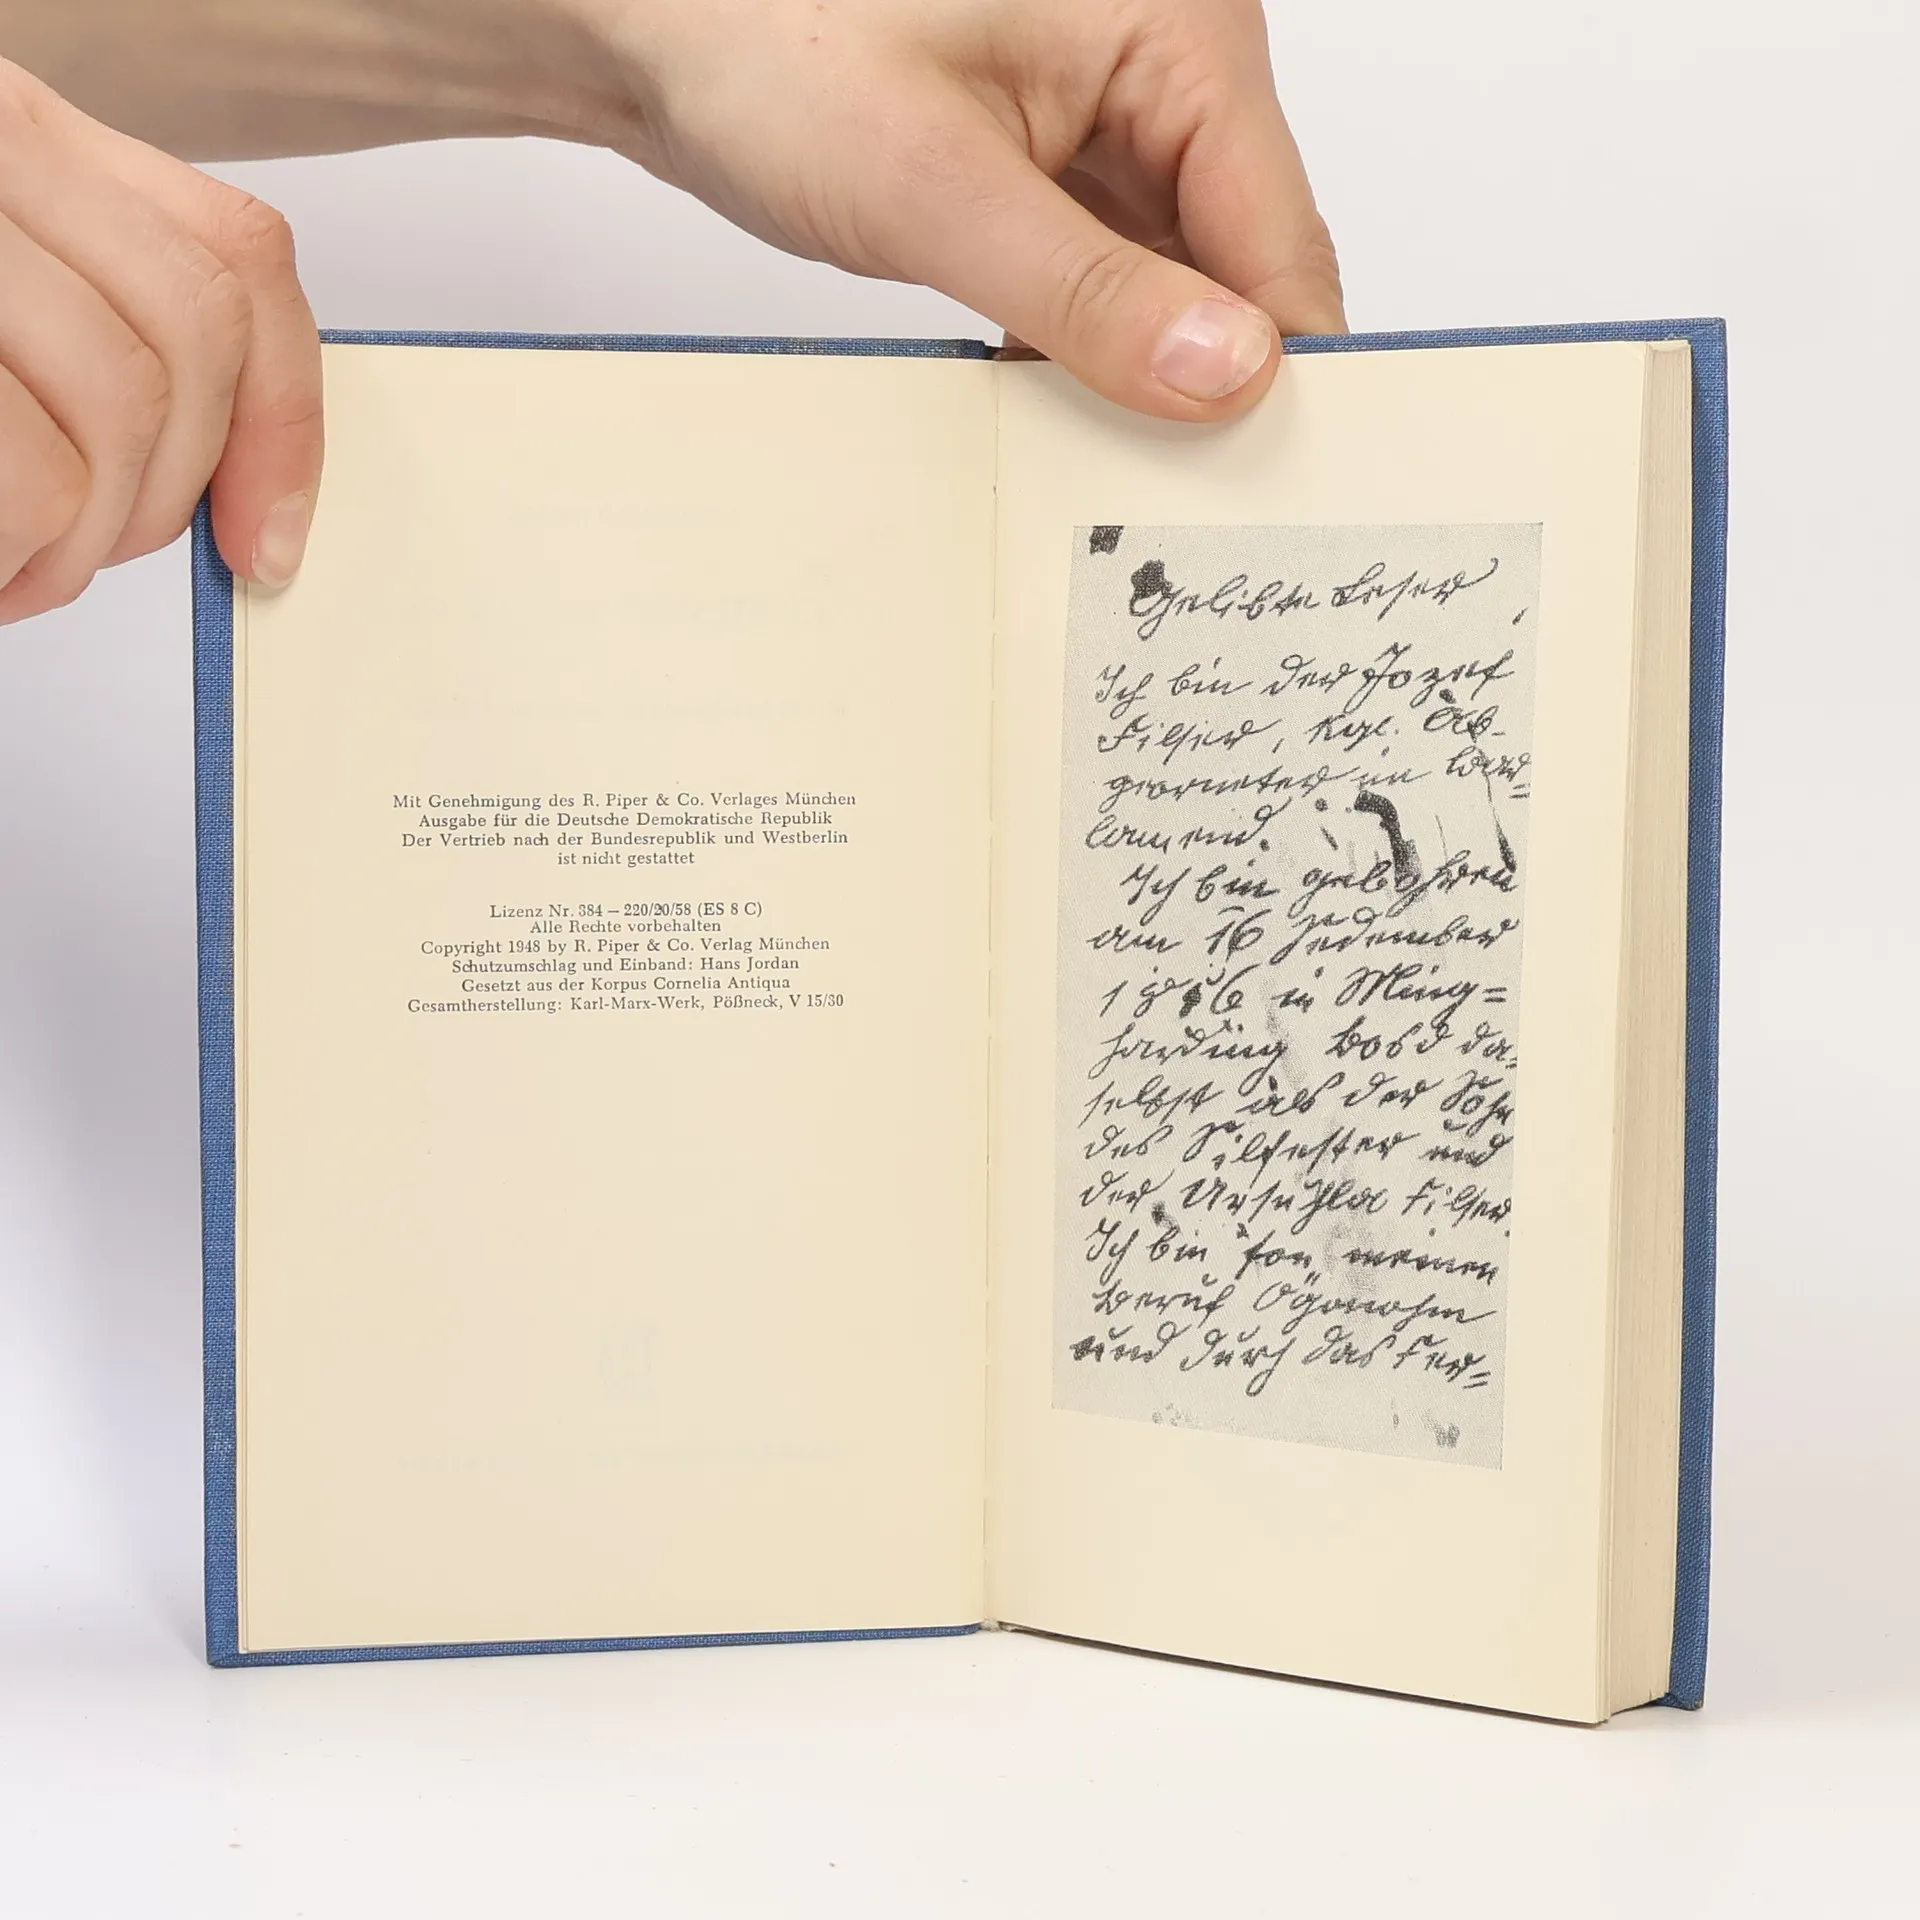 Mit Genehmigung des R. Piper & Co. Verlages München
Ausgabe für die Deutsche Demokratische Republik
Der Vertrieb nach der Bundesrepublik und Westberlin
ist nicht gestattet
Lizenz Nr. 384 – 220/20/58 (ES 8 C)
Alle Rechte vorbehalten
Copyright 1948 by R. Piper & Co. Verlag München
Schutzumschlag und Einband: Hans Jordan
Gesetzt aus der Korpus Cornelia Antiqua
Gesamtherstellung: Karl-Marx-Werk, Pößneck, V 15/30
Gelibte Leser,
Ich bin der Jozef
Filser, kgl. Ab-
georneter im
Ich bin gebohren
am 16
in Ming=
harding Bosd da=
selbst als der Sohn
des Silfester und
der Ursuhla Filser.
Ich bin fon meinen
Beruf Ögonohm
und durch das Fer=